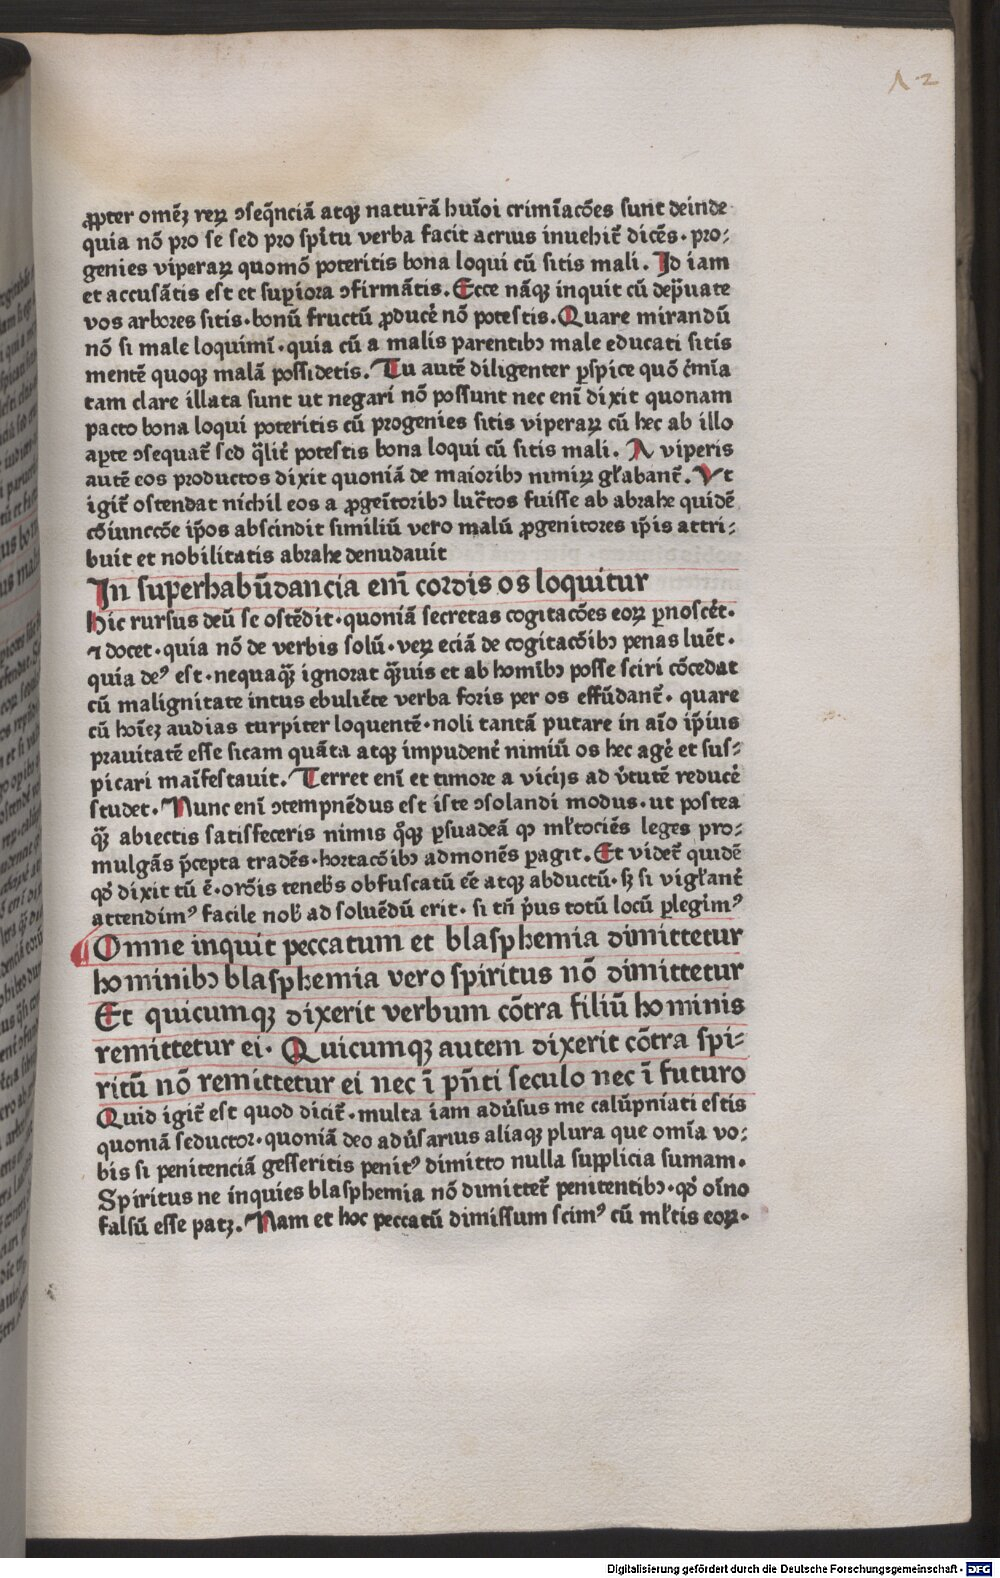 12
ꝓpter omēꝫ reꝝ ↄseq̄nciā atqꝫ naturā huiꝰoi crimīacōes sunt deinde
quia nō pro se sed pro spiritu verba facit acrius inuehit̄ dicēs · pro⸗
genies viperaꝝ quomō poteritis bona loqui cū sitis mali. Id iam
et accusātis est et supiora ↄfirmātis. Ecce nāqꝫ inquit cū dep̄uate
vos arbores sitis · bonū fructū ꝓducē nō potestis. Quare mirandū
nō si male loquimī · quia cū a malis parentibꝫ male educati sitis
mentē quoqꝫ malā possidetis. Tu autē diligenter ꝑspice quō c̄mīa
tam clare illata sunt ut negari nō possunt nec enī dixit quonam
pacto bona loqui poteritis cū progenies sitis viperaꝝ cū hec ab illo
aꝑte ↄsequat̄ sed q̄lit̄ potestis bona loqui cū sitis mali. A viperis
autē eos productos dixit quoniā de maioribꝫ nimiꝝ gl̄abant̄. Vt
igit̄ ostendat nichil eos a ꝓgeītoribꝫ luc̄tos fuisse ab abrahe quidē
cōiunccōe ip̄os abscindit similiū vero malū ꝓgenitores ip̄is attri⸗
buit et nobilitatis abrahe denudauit
In suꝑhabūdancia enī cordis os loquitur
Hic rursus deū se ostēdit · quoniā secretas cogitacōes eoꝝ ꝑnoscēt ·
⁊ docet · quia nō de verbis solū · veꝝ eciā de cogitacōibꝫ penas luēt ·
quia deꝰ est · nequaq̄ꝫ ignorat q̄ꝫuis et ab homībꝫ posse sciri cōcedat
cū malignitate intus ebuliēte verba foris per os effūdant̄ · quare
cū hoīeꝫ audias turpiter loquentē · noli tantā putare in aīo ip̄ius
prauitatē esse sicam quāta atqꝫ impudent̄ nimiū os hec agē et sus⸗
picari maīfestauit. Terret enī et timore a vicijs ad v̄tutē reducē
studet. Nunc enī ↄtempnēdus est iste ↄsolandi modus · ut postea
q̄ꝫ abiectis satisfeceris nimis q̄qꝫ ꝑsuadeā ꝙ ml̄tociēs leges pro⸗
mulgās p̄cepta tradēs · hortacōibꝫ admonēs ꝑagit. Et videt̄ quidē
qđ dixit tū ē · ordīs tenebꝫ obfuscatū eē atqꝫ abductū · sꝫ si vigl̄ant̄
attendimꝰ facile nob̄ ad soluēdū erit · si tn̄ p̄us totū locū ꝑlegimꝰ
Omne inquit peccatum et blasphemia dimittetur
hominibꝫ blasphemia vero spiritus nō dimittetur
Et quicumqꝫ dixerit verbum cōtra filiū hominis
remittetur ei · Quicumqꝫ autem dixerit cōtra spi⸗
ritū nō remittetur ei nec ī pn̄ti seculo nec ī futuro
Quid igit̄ est quod dicit̄ · multa iam adūsus me calūpniati estis
quoniā seductor · quoniā deo adūsarius aliaqꝫ plura que omīa vo⸗
bis si penitenciā gesseritis penitꝰ dimitto nulla supplicia sumam ·
Spiritus ne inquies blasphemia nō dimittet̄ penitentibꝫ · qđ oīno
falsū esse patꝫ. Nam et hoc peccatū dimissum scimꝰ cū ml̄tis eoꝝ ·
Digitalisierung gefördert durch die Deutsche Forschungsgemeinschaft - DFG